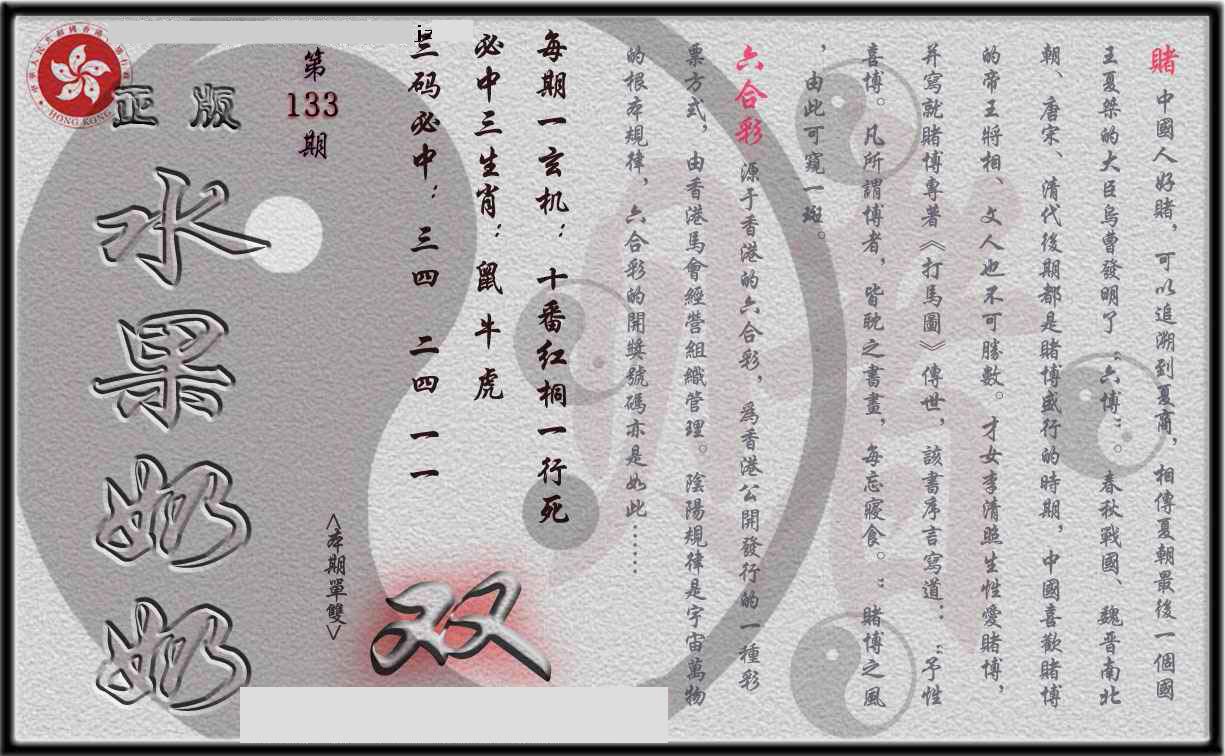 賭 中國人好賭，可以追溯到夏商，相傳夏朝最後一個國
王夏桀的大臣烏曹發明了“六博”。春秋戰國、魏晋南北
朝、唐宋、清代後期都是賭博盛行的時期，中國喜歡賭博
的帝王將相、文人也不可勝數。才女李清照生性愛賭博，
并寫就賭博專著《打馬圖》傳世，該書序言寫道：：“予性
喜博。凡所謂博者，皆耽之晝晝，每忘寢食。”賭博之風
，由此可窺一斑。
六合彩 源于香港的六合彩，爲香港公開發行的一種彩
票方式，由香港馬會經營組織管理。陰陽規律是宇宙萬物
的根本規律，六合彩的開獎號碼亦是如此……
每期一玄机：十番红桐一行死
必中三生肖：鼠牛虎
三码必中：三四 二四 一一
<本期單雙>
双
第
133
期
正版
水果奶奶
HONG KONG